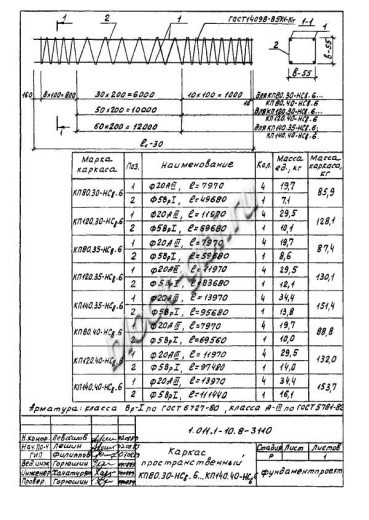 1
2
1
ГОСТ 14098-85К1-Кт
1-1
1
2
в-55
в-55
160
8×100=800
30×200=6000
10×100=1000
для КП80.30-НСв.6...
КП80.40-НСв.6
50×200=10000
для КП120.30-НСв.6...
КП120.40-НСв.6
60×200=12000
для КП140.35-НСв.6
КП140.40-НСв.6
1
ℓ,-30
Марка каркаса
Поз.
Наименование
Кол.
Масса ед., кг
Масса каркаса, кг
КП80.30-НСв.6
1 Ф20АIII, ℓ=7970 4 19,7
85,9
2 Ф5ВрI, ℓ=49680 1 7,1
КП120.30-НСв.6
1 Ф20АIII, ℓ=11970 4 29,5
128,1
2 Ф5ВрI, ℓ=69680 1 10,1
КП80.35-НСв.6
1 Ф20АIII, ℓ=7970 4 19,7
87,4
2 Ф5ВрI, ℓ=59680 1 8,6
КП120.35-НСв.6
1 Ф20АIII, ℓ=11970 4 29,5
130,1
2 Ф5ВрI, ℓ=83680 1 12,1
КП140.35-НСв.6
1 Ф20АIII, ℓ=13970 4 34,4
151,4
2 Ф5ВрI, ℓ=95680 1 13,8
КП80.40-НСв.6
1 Ф20АIII, ℓ=7970 4 19,7
88,8
2 Ф5ВрI, ℓ=69560 1 10,0
КП120.40-НСв.6
1 Ф20АIII, ℓ=11970 4 29,5
132,0
2 Ф5ВрI, ℓ=97480 1 14,0
КП140.40-НСв.6
1 Ф20АIII, ℓ=13970 4 34,4
153,7
2 Ф5ВрI, ℓ=111440 1 16,1
Арматура: класса Вр-I по ГОСТ 6727-80, класса А-III по ГОСТ 5781-82
1.011.1-10.8-3110
Н.контр.
Нач.по
ГИП Филиппов
Вед.инж Горюшин
Инженер
Провер. Горюшин
Каркас
пространственный
КП80.30-НСв.6...КП140.40-НСв.6
Стадия Лист Листов
Р 1
Фундаментпроект